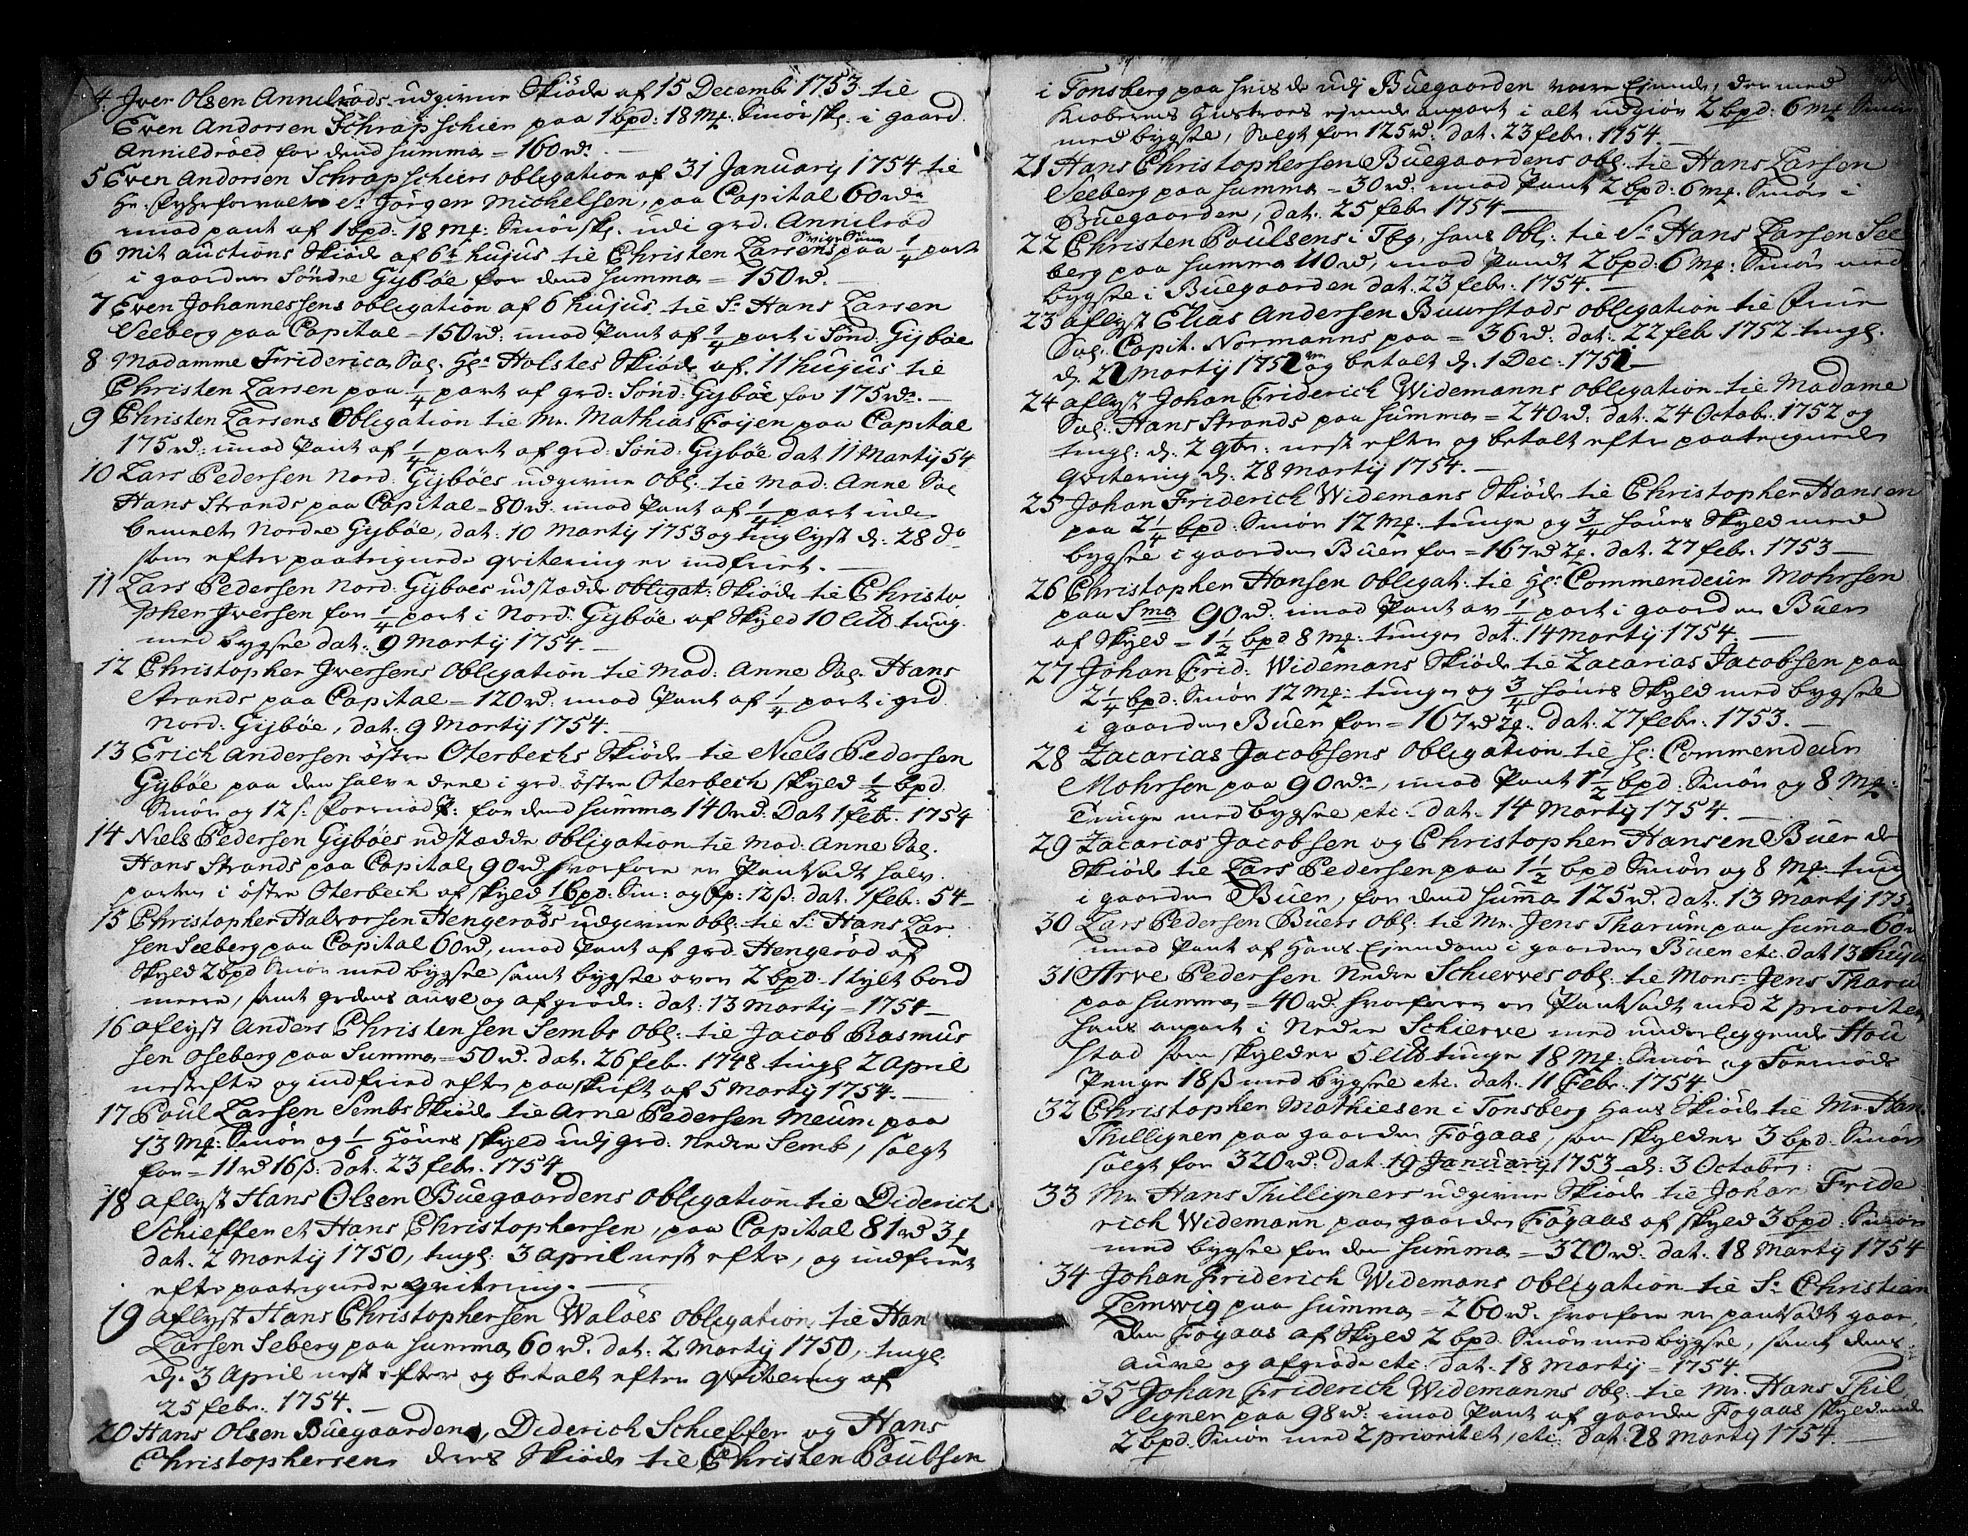 4. Iver Olsen Annilrøds udgivne Skiøde af 15 Decemb: 1753 til
Even Andersen Schrapschier paa 1 bpd: 18 Mk: Smørsk: i gaard
Annildrøed for dend summa = 160 rd.
5 Even Andersen Schrapschiers obligation af 31 Januarij 1754 til
Hr. Sr Jørgen Michelsen, paa Capital 60 rd
imod pant af 1 bpd: 18 Mk: Smørsk: udi grd. Annilrød
6 Mit auctions Skiøde af 6te hujus til Christen Larsens paa 1/4 part
i gaarden Søndre Gijbøe for dend summa = 150 rd. —
7 Even Johannessens obligation af 6 hujus til Sr Hans Larsen
Seeberg paa Capital = 150 rd. imod Pant af 1/4 part i Sønd: Gijbøe
8 Madamme Friderica Sal. Hr Holstes Skiøde af 11 hujus til
Christen Larsen paa 1/4 part af grd: Sønd: Gijbøe for 175 rd. —
9 Christen Larsens Obligation til Mr. Mathias Foijen paa Capital
175 rd: imod Pant af 1/4 part af grd: Sønd: Gijbøe dat 11 Martij 54
10 Lars Pedersen Nord: Gijbøes udgivne Obl: til Mad: Anne Sal
Hans Strands paa Capital = 80 rd. imod Pant af 1/4 part udi
bemelte Nordre Gijbøe, dat: 10 Martij 1753 og tinglyst d: 28 do
som efter paategnede qvitering er indfriet. —
11 Lars Pedersen Nord: Gijbøes udstædde obligat: Skiøde til Christo
pher Iversen for 1/4 part i Nord: Gijbøe af Skyld 10 Lib tung.
med bygsle dat: 9 Martij 1754. —
12 Christopher Iversens Obligation til Mad: Anne Sal. Hans
Strands paa Capital = 120 rd. imod Pant af 1/4 part i grd
Nord: Gijbøe, dat: 9 Martij 1754.
13 Erich Andersen østre Oterbechs Skiøde til Niels Pedersen
Gijbøe paa den halve deel i grd østre Oterbech skyld 1/2 bpd.
Smør og 12 s: foernød P: for dend summa 140 rd. Dat 1 feb: 1754
14 Niels Pedersen Gijbøes udstædde Obligation til Mad: Anne Sal.
Hans Strands paa Capital 90 rd hvorfore er Pantsadt halv.
parten i østre Oterbech af skyld 1 bpd: Sm: og fp: 12 ß: dat: 1 febr: 54 —
15 Christopher Halvorsen Hengerøds udgivne Obl: til Sr Hans Lar
sen Seeberg paa Capital 60 rd, imod Pant af grd Hengerød af
Skyld 2 bpd Smør med bygsle samt bygsle over 2 bpd. 1 tylt bord
meere, samt grdens auvl og afgrøde: dat: 13 Martij = 1754 —
16 aflyst Anders Christensen Sembs Obl: til Jacob Rasmus
sen Oseberg paa Summa = 50 rd. dat: 26 febr. 1748 tingl 2 April
nestefter og indfried efter paaskrift af 5 Martij 1754. —
17 Poul Larsen Sembs Skiøde til Arne Pedersen Meum paa
13 Mk: Smør og 1/6 Houes skyld udj grd. Nedre Semb, solgt
for = 11 rd 16 ß: dat: 23 febr: 1754
18 aflyst Hans Olsen Buegaardens Obligation til Diderich
Schieffer et Hans Christophersen, paa Capital 81 rd 3 k
dat. 2 Martij 1750, tingl: 3 April nest efter, og indfriet
efter paategnede qvitering. —
19 aflyst Hans Christophersen Waløes Obligation til Han
Larsen Seberg paa summa 60 rd. dat: 2 Martij 1750, tingl:
d. 3 April nest efter og betalt efter qvitering af
25 febr. 1754. —
20 Hans Olsen Buegaarden, Diderich Schieffer og Hans
Christophersen deres Skiøde til Christen Poulsen
i Tønsberg paa hvis de udj Buegaarden vare Ejende, der med
Kiøberens Hustroes ejende anpart i alt udgiør 2 bpd: 6 Mk Smør
med bygsle, Solgt for 125 rd. dat. 23 febr. 1754.
21 Hans Christophersen Buegaardens obl. til Hans Larsen
Seeberg paa summa = 30 rd. imod Pant 2 bpd: 6 Mk: Smør i
Buegaarden, dat. 25 febr 1754 —
22 Christen Poulsens i Tbg, hans Obl: til Sr Hans Larsen See
berg paa summa 110 rd, imod Pandt 2 bpd: 6 Mk: Smør med
bygsle i Buegaarden dat. 23 febr. 1754. —
23 aflyst Elias Andersen Buurstads obligation til Frue
Sal. Capit. Normanns paa = 36 rd. dat: 22 febr 1752 tingl.
d. 22 Martij 1752 og betalt d. 1 Dec. 175
24 aflyst Johan Friderich Widemanns obligation til Madame
Sal. Hans Strands paa summa = 240 rd: dat: 24 Octobr. 1752 og
tingl: d. 2 9br. nest efter og betalt efter paategnede
qvitering d. 28 Martij 1754. —
25 Johan Friderich Widemans Skiøde til Christopher Hansen
paa 2 1/4 bpd: Smør 12 Mk: tunge og 3/4 houes Skyld med
bygsle i gaarden Buer for = 167 rd 2 k. dat. 27 febr. 1753 —
26 Christopher Hansen Obligat: til Hr: Commendeur Mohrsen
paa Sma 90 rd. imod Pant av 1/4 part i gaarden Buer
af Skyld = 1 1/2 bpd 8 Mk: tunge dat. 14 Martij 1754. —
27 Johan Frid: Widemans Skiøde til Zacarias Jacobsen paa
2 1/4 bpd: Smør 12 Mk: tunge og 3/4 houes Skyld med bygsle
i gaarden Buer for = 167 rd 2 k. dat. 27 febr. 1753. —
28 Zacarias Jacobsens Obligation til Hr: Commendeur
Mohrsen paa 90 rd, imod Pant 1 1/2 bpd: Smør og 8 Mk:
Tunge med bygsle etc. dat. 14 Martij 1754. —
29 Zacarias Jacobsen og Christopher Hansen Buer de
Skiøde til Lars Pedersen paa 1 1/2 bpd Smør og 8 Mk tung
i gaarden Buer, for dend summa 125 rd. dat. 13 Martij 175
30 Lars Pedersen Buers Obl: til Mr. Jens Tharum paa suma 60 r
imod Pant af Hans Ejendom i gaarden Buer etc. dat 13 huju
31 Arve Pedersen Nedre Schierves obl: til Monsr. Jens Tharu
paa summa = 40 rd. hvorfore er Pantsadt med 2 prioritet
hans anpart i Nedre Schierve med underliggende Hou
stad som skylder 5 Lib tunge 18 Mk: Smør og Foernøds
Penge 18 ß med bygsle etc. dat. 11 Febr. 1754.
32 Christopher Mathiesen i Tønsberg hans Skiøde til Mr. Han
Thilligner paa gaarden Føgaas, som skylder 3 bpd. Smør
solgt for 320 rd. dat. 19 Januarij 1753 d: 3 Octobr:
33 Mr. Hans Thilligners udgivne Skiøde til Johan Fride
rich Widemann paa gaarden Føgaas af skyld 3 bpd: Smør
med bygsle for den summa = 370 rd. dat. 18 Martij 1754
34 Johan Friderich Widemans Obligation til Sr Christian
Lemwig paa summa = 260 rd. hvorfore er pantsadt gaar,
den Føgaas af Skyld 2 bpd. Smør med bygsle, samt dens
auvl og afgrøde etc. dat. 18 Martij = 1754.
35 Johan Friderich Widemanns obl. til Mr. Hans Thil
ligner paa 98 rd: imod Pant af gaarden Føgaas skyldende
2 bpd. Smør med 2 prioritet, etc. dat. 28 Martij 1754. —